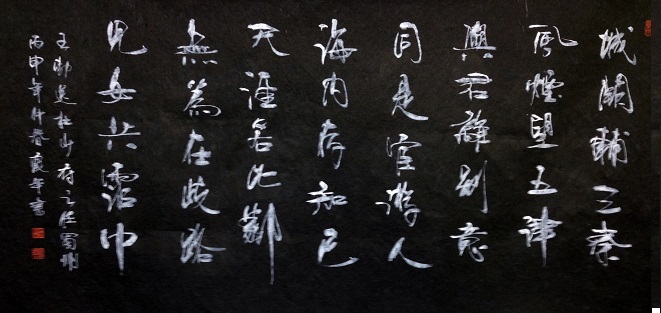 城闕輔三秦
風煙望五津
與君離別意
同是宦游人
海內存知己
天涯若比鄰
無為在歧路
兒女共霑巾
王勃送杜少府之任蜀州
丙申年仲春書